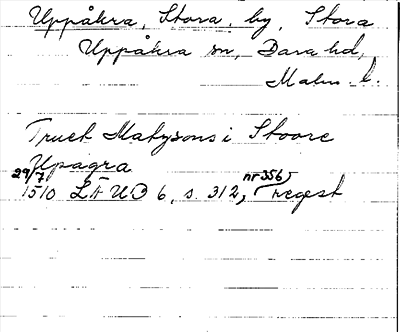 Uppåkra, Stora, by, Stora
Uppåkra sn, Bara hd,
Malm. l.
Truet Matzsons i Stoore
Upagra
29/7 1510 LÄUB 6, s. 312, nr 356, regest